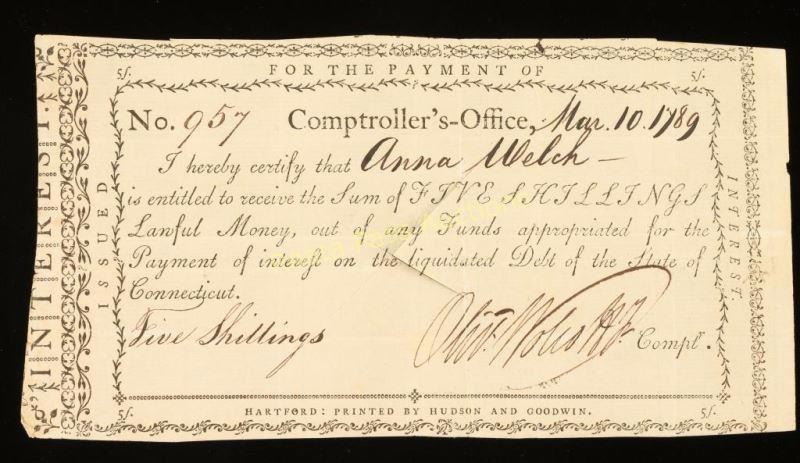 FOR THE PAYMENT OF
5/. 5/.
No. 957 Comptroller's-Office, Mar. 10. 1789
I hereby certify that Anna Welch
is entitled to receive the Sum of FIVE SHILLINGS
Lawful Money, out of any Funds appropriated for the
Payment of interest on the liquidated Debt of the State of
Connecticut.
Five Shillings Olivr. Wolcott Jr. Complr.
5/. 5/.
HARTFORD: PRINTED BY HUDSON AND GOODWIN.
ISSUED
INTEREST.
INTEREST.